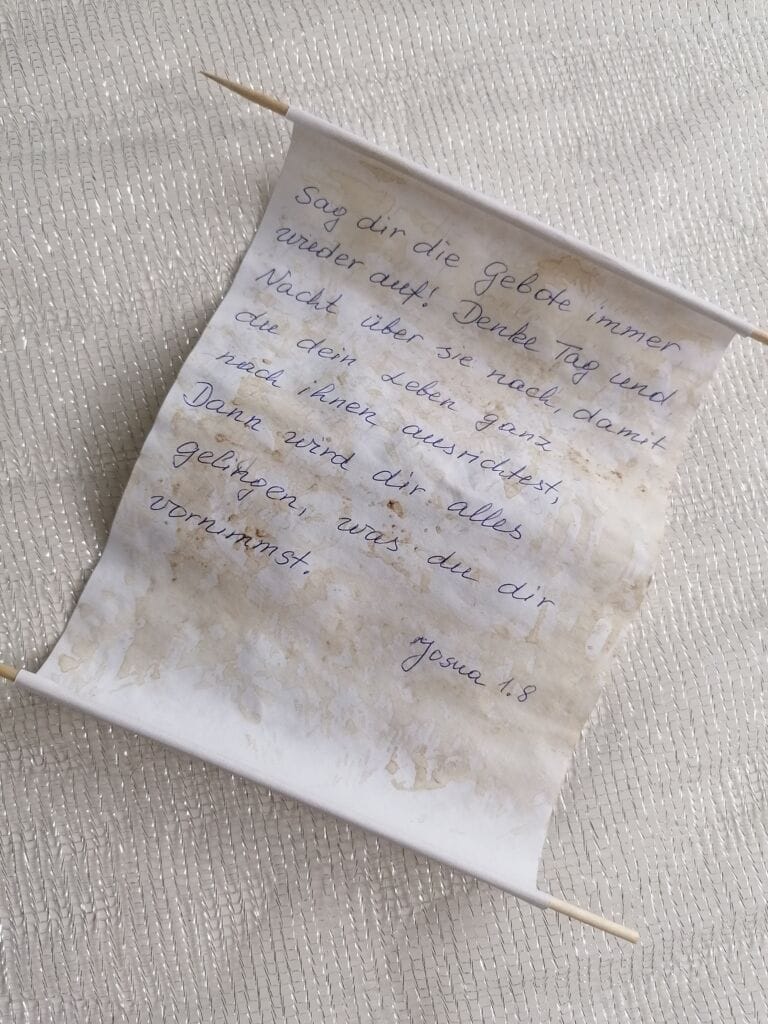 Sag dir die Gebote immer
wieder auf! Denke Tag und
Nacht über sie nach, damit
du dein Leben ganz
nach ihnen ausrichtest,
Dann wird dir alles
gelingen, was du dir
vornimmst.
Josua 1.8